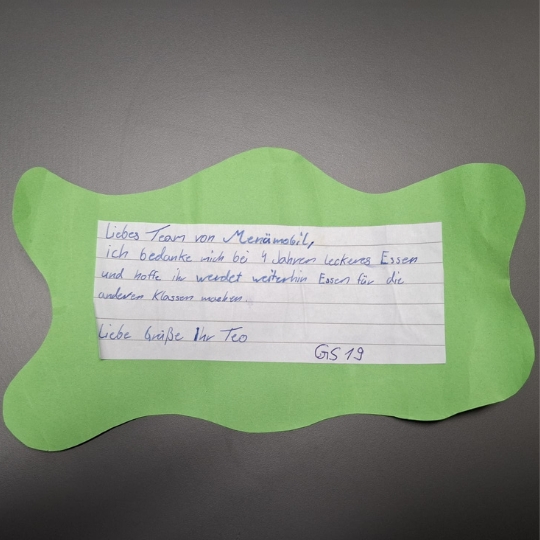 Liebes Team von Menümobil,
ich bedanke mich bei 4 Jahren leckeres Essen
und hoffe ihr werdet weiterhin Essen für die
anderen Klassen machen.
Liebe Grüße Ihr Teo
GS 19